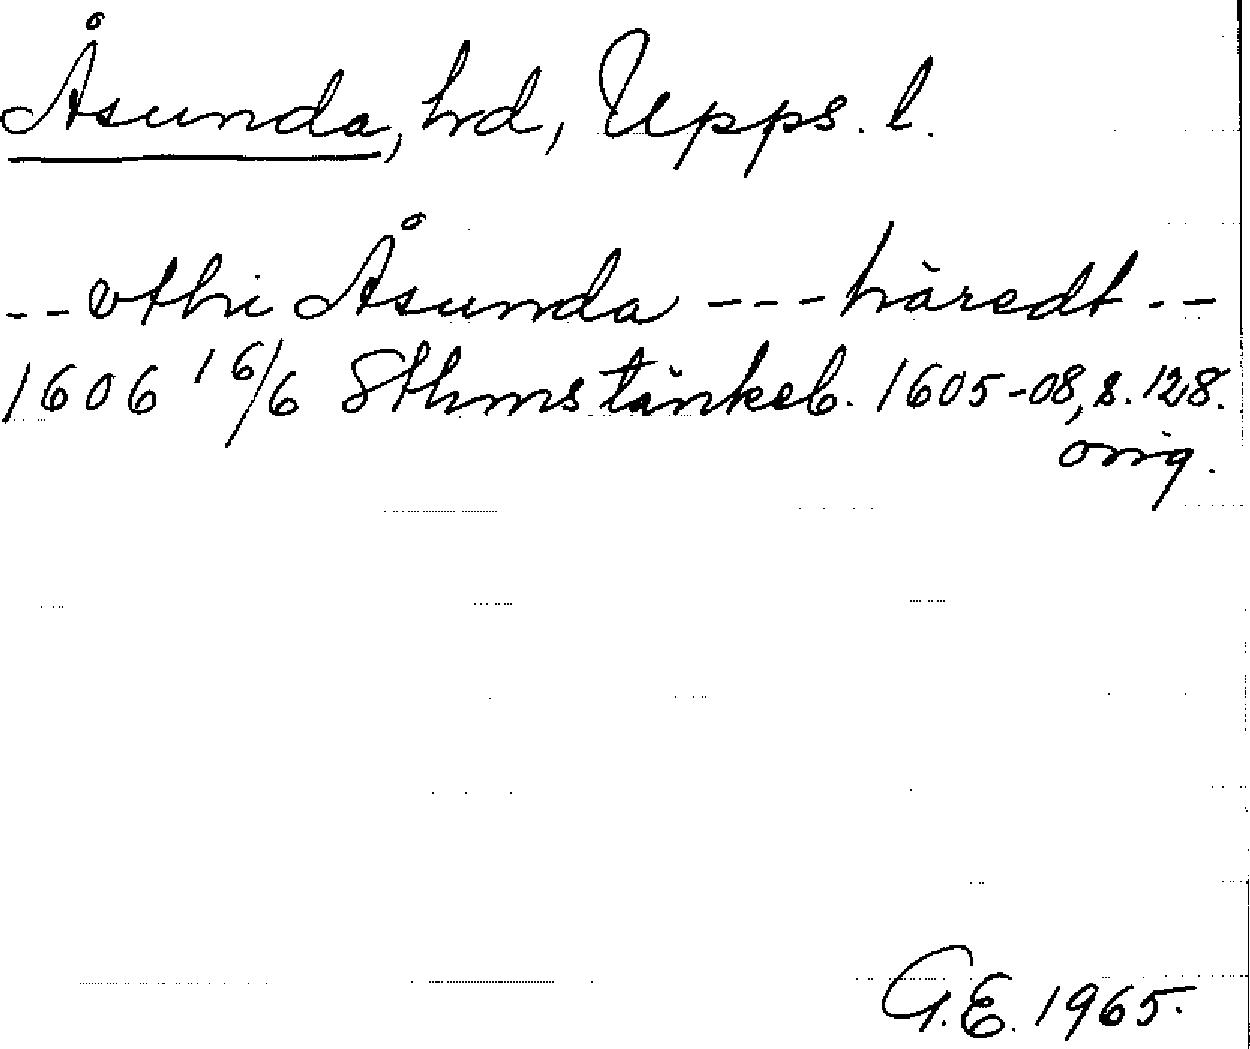 Åsunda, hrd, Upps. l.
-- vthi Åsunda --- häredt --
1606 16/6 Sthms tänkeb. 1605-08, s. 128.
orig.
G.E. 1965.